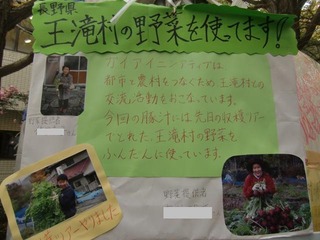 長野県
王滝村の野菜を使ってます!
アイアイニンアティブは
都市と農村をつなぐため、王滝村との
交流活動をおこなっています。
今回の豚汁には先日の収穫ツアー
でとれた、王滝村の野菜を
ふんだんに使っています。
野菜提供者
野菜提供者
ツアーやりました